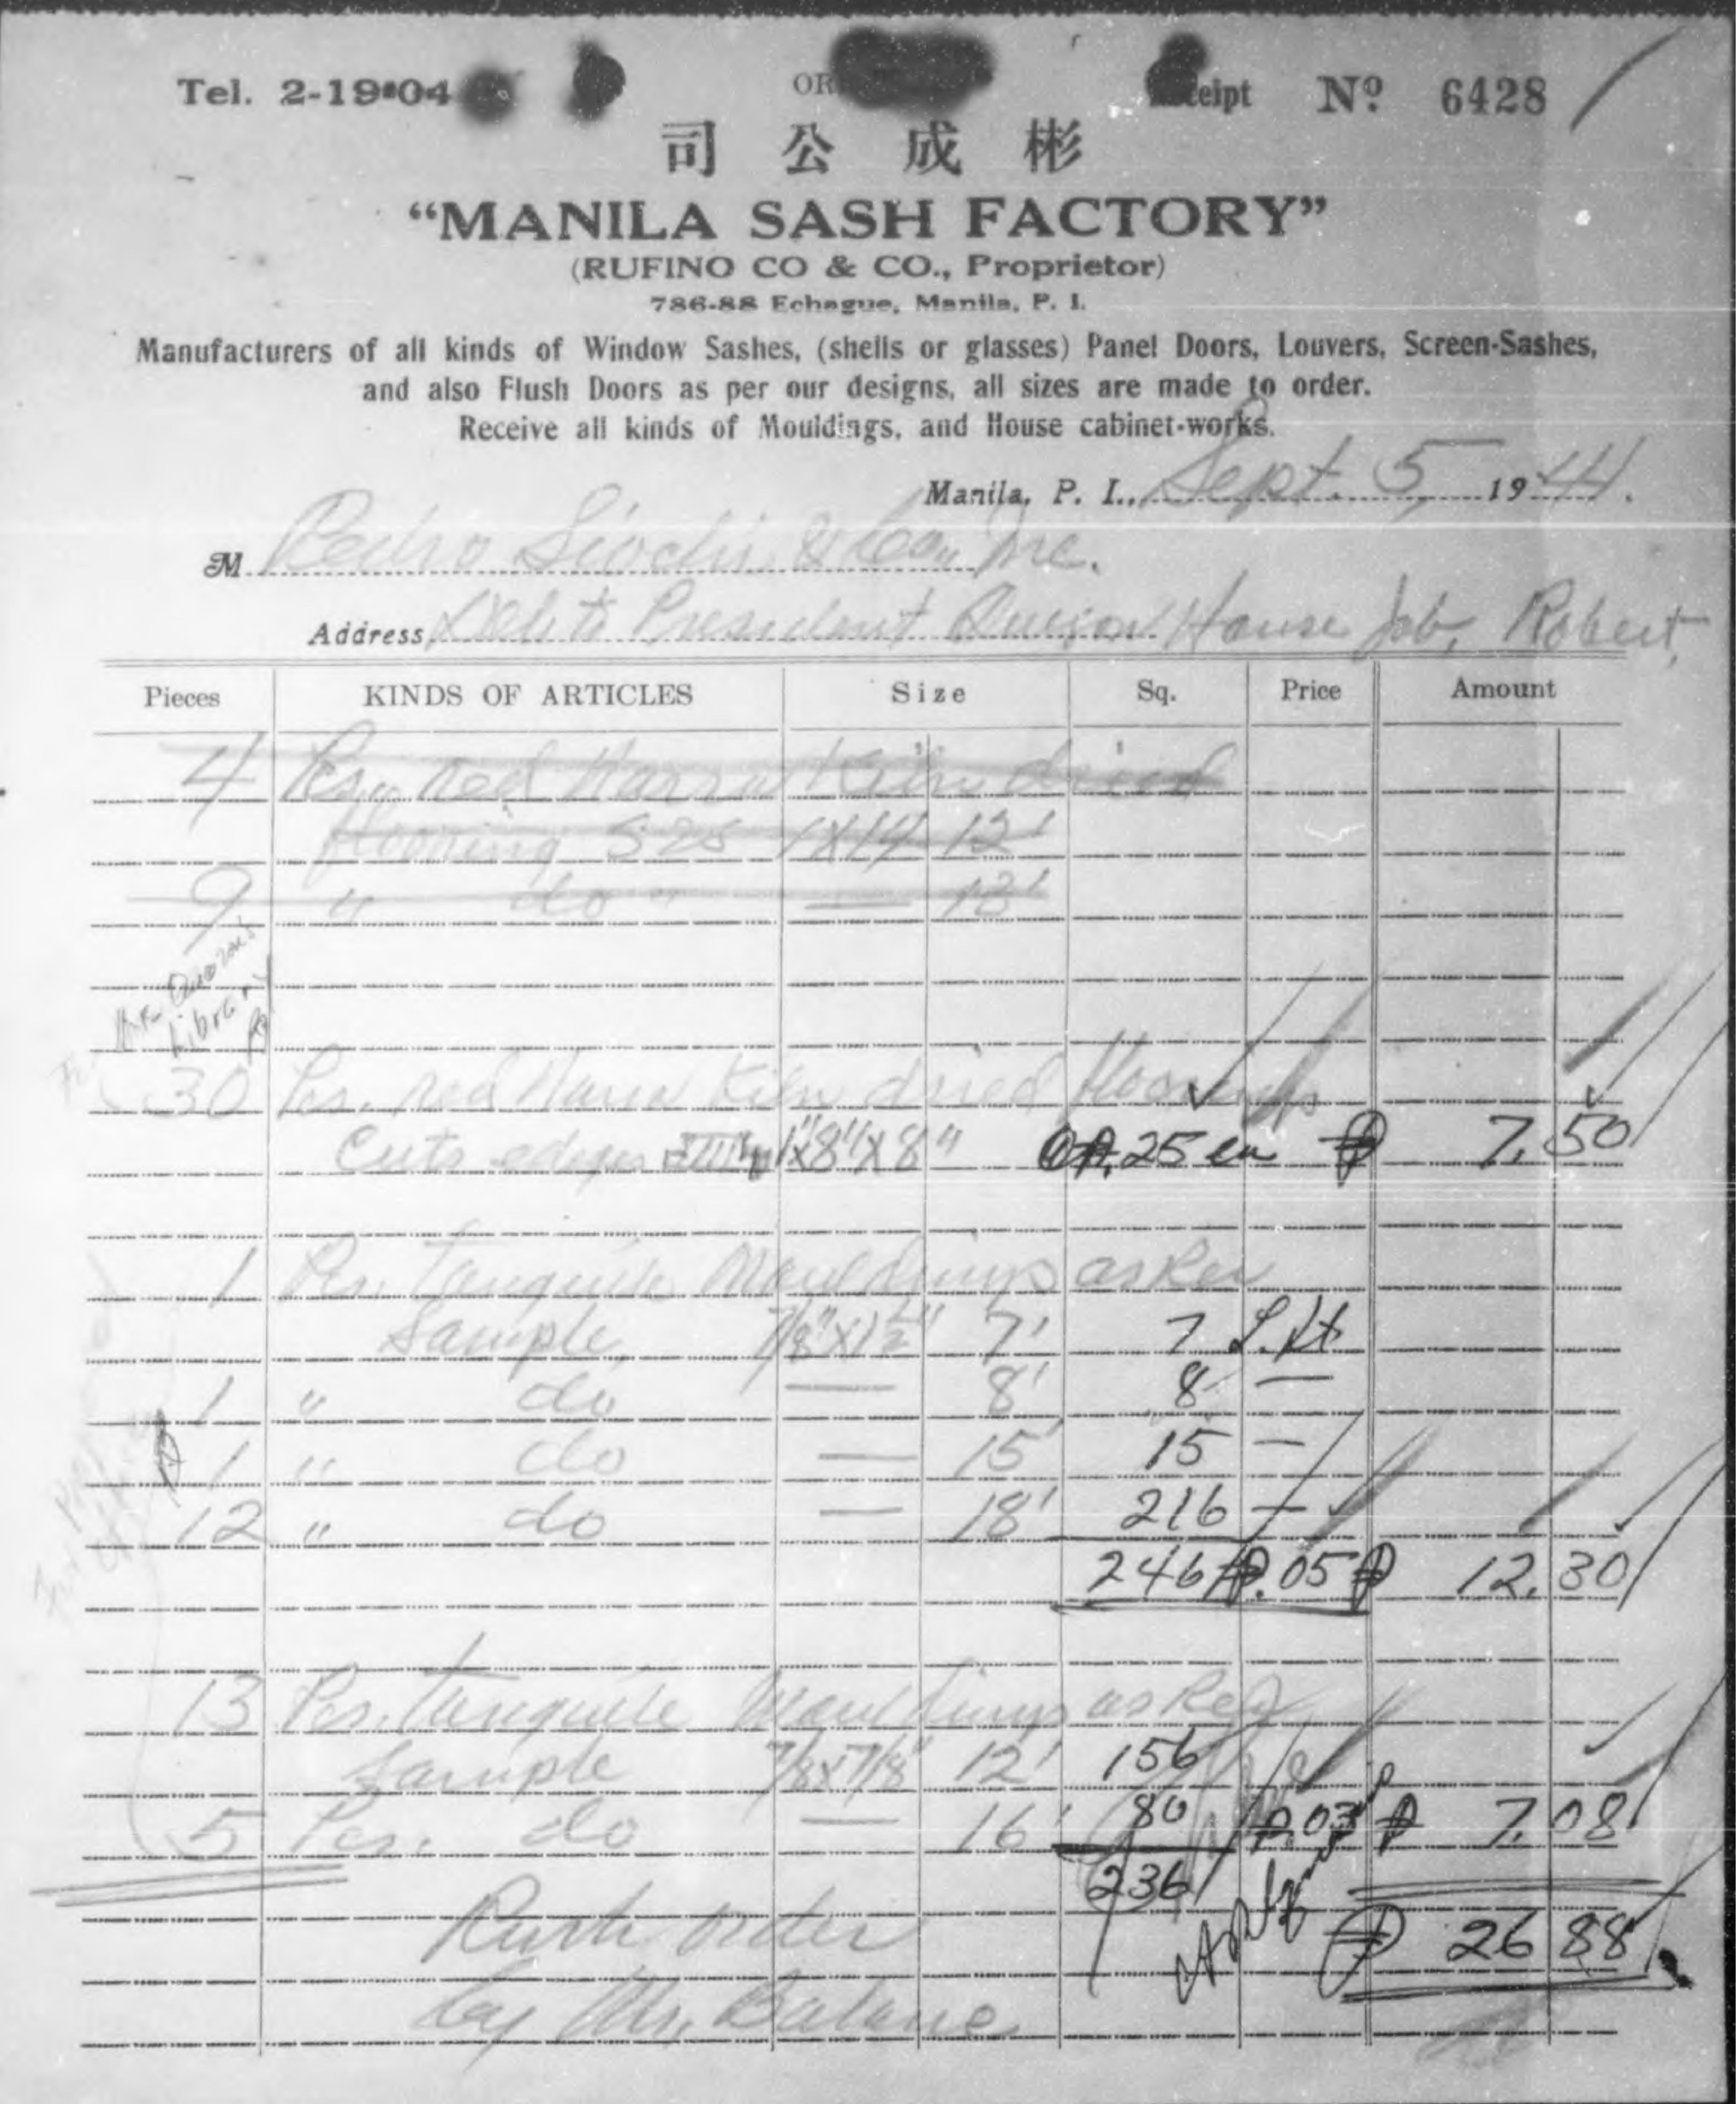 Tel. 2-19-04 Receipt Nº 6428
司 公 成 彬
“MANILA SASH FACTORY”
(RUFINO CO & CO., Proprietor)
786-88 Echague, Manila, P. I.
Manufacturers of all kinds of Window Sashes, (shells or glasses) Panel Doors, Louvers, Screen-Sashes,
and also Flush Doors as per our designs, all sizes are made to order.
Receive all kinds of Mouldings, and House cabinet-works.
Manila, P. I., Sept. 5, 1944.
M Pedro Siochi & Co., Inc.
Address President Quezon House Job, Robert,
Pieces KINDS OF ARTICLES Size Sq. Price Amount
4 Pcs. red Narra Kiln dried
flooring S2S 1x14 12'
9 " do " — 12'
Quezon's
Library
30 Pcs. red Narra Kiln dried
Cuts edges 1"x8"x8" @ ₱.25 ea ₱ 7.50
1 Pcs. Tanguile Mouldings as Per
Sample, 7/8"x1½" 7' 7 L.ft
1 " do — 8' 8 —
1 " do — 15' 15 —
12 " do — 18' 216 —
246 ₱.05 ₱ 12.30
13 Pcs. Tanguile Mouldings as Per
Sample 7/8x7/8" 12' 156
5 Pcs. do — 16' 80 ₱.03 ₱ 7.08
236
Rush order ₱ 26 88
by Mr.